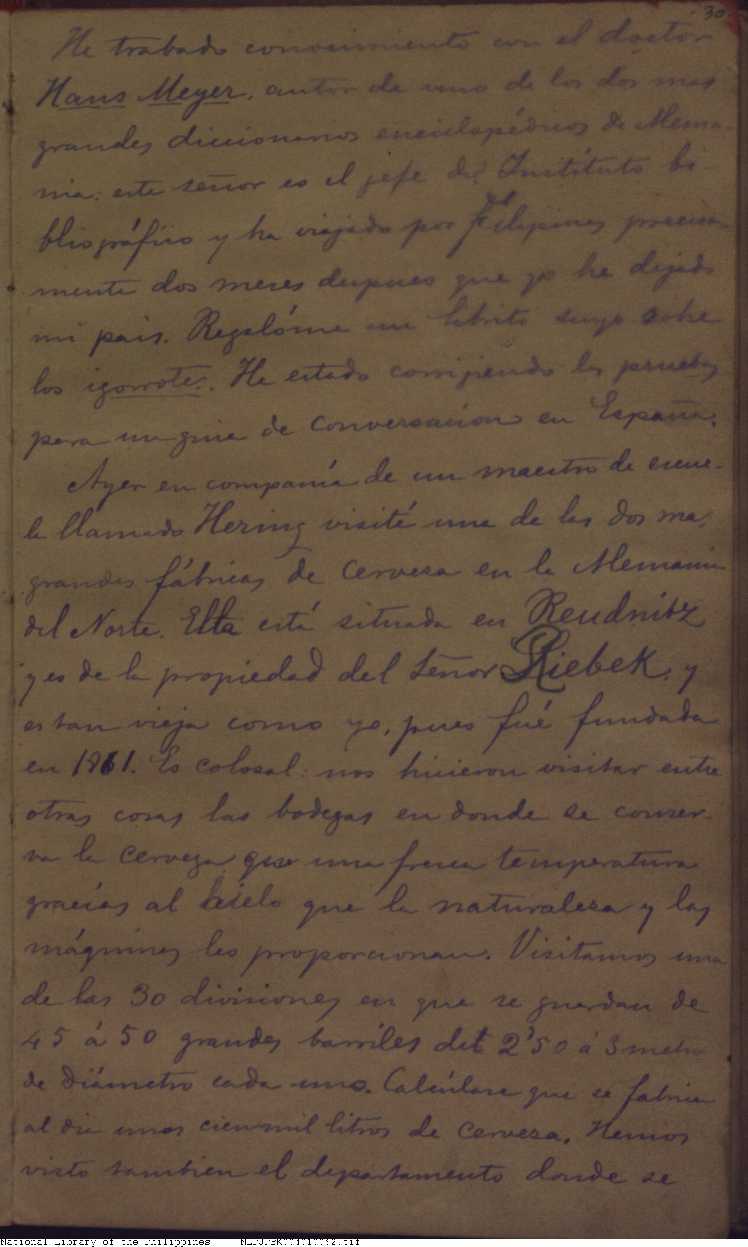 30
He trabado conocimiento con el doctor
Hans Meyer, autor de uno de los dos mas
grandes diccionarios enciclopédicos de Alema-
nia: este señor es el jefe del Instituto bi-
bliográfico y ha viajado por Filipinas precisa-
mente dos meses despues que yo he dejado
mi pais. Regalóme un librito suyo sobre
los igorrotes. He estado corrijiendo las pruebas
para un guia de conversacion en España.
Ayer en compañía de un maestro de escue-
la llamado Hering visité una de las dos mas
grandes fábricas de cerveza en la Alemania
del Norte. Ella está situada en Reudnitz
y es de la propiedad del Señor Riebek, y
es tan vieja como yo, pues fué fundada
en 1861. Es colosal: nos hicieron visitar entre
otras cosas las bodegas en donde se conser-
va la cerveza que una fresca temperatura
gracias al hielo que la naturaleza y las
máquinas les proporcionan. Visitamos una
de las 30 divisiones en que se guardan de
45 á 50 grandes barriles de 2'50 á 3 metros
de diámetro cada uno. Calcúlase que se fabrica
al dia unos cien mil litros de cerveza. Hemos
visto tambien el departamento donde se
National Library of the Philippines